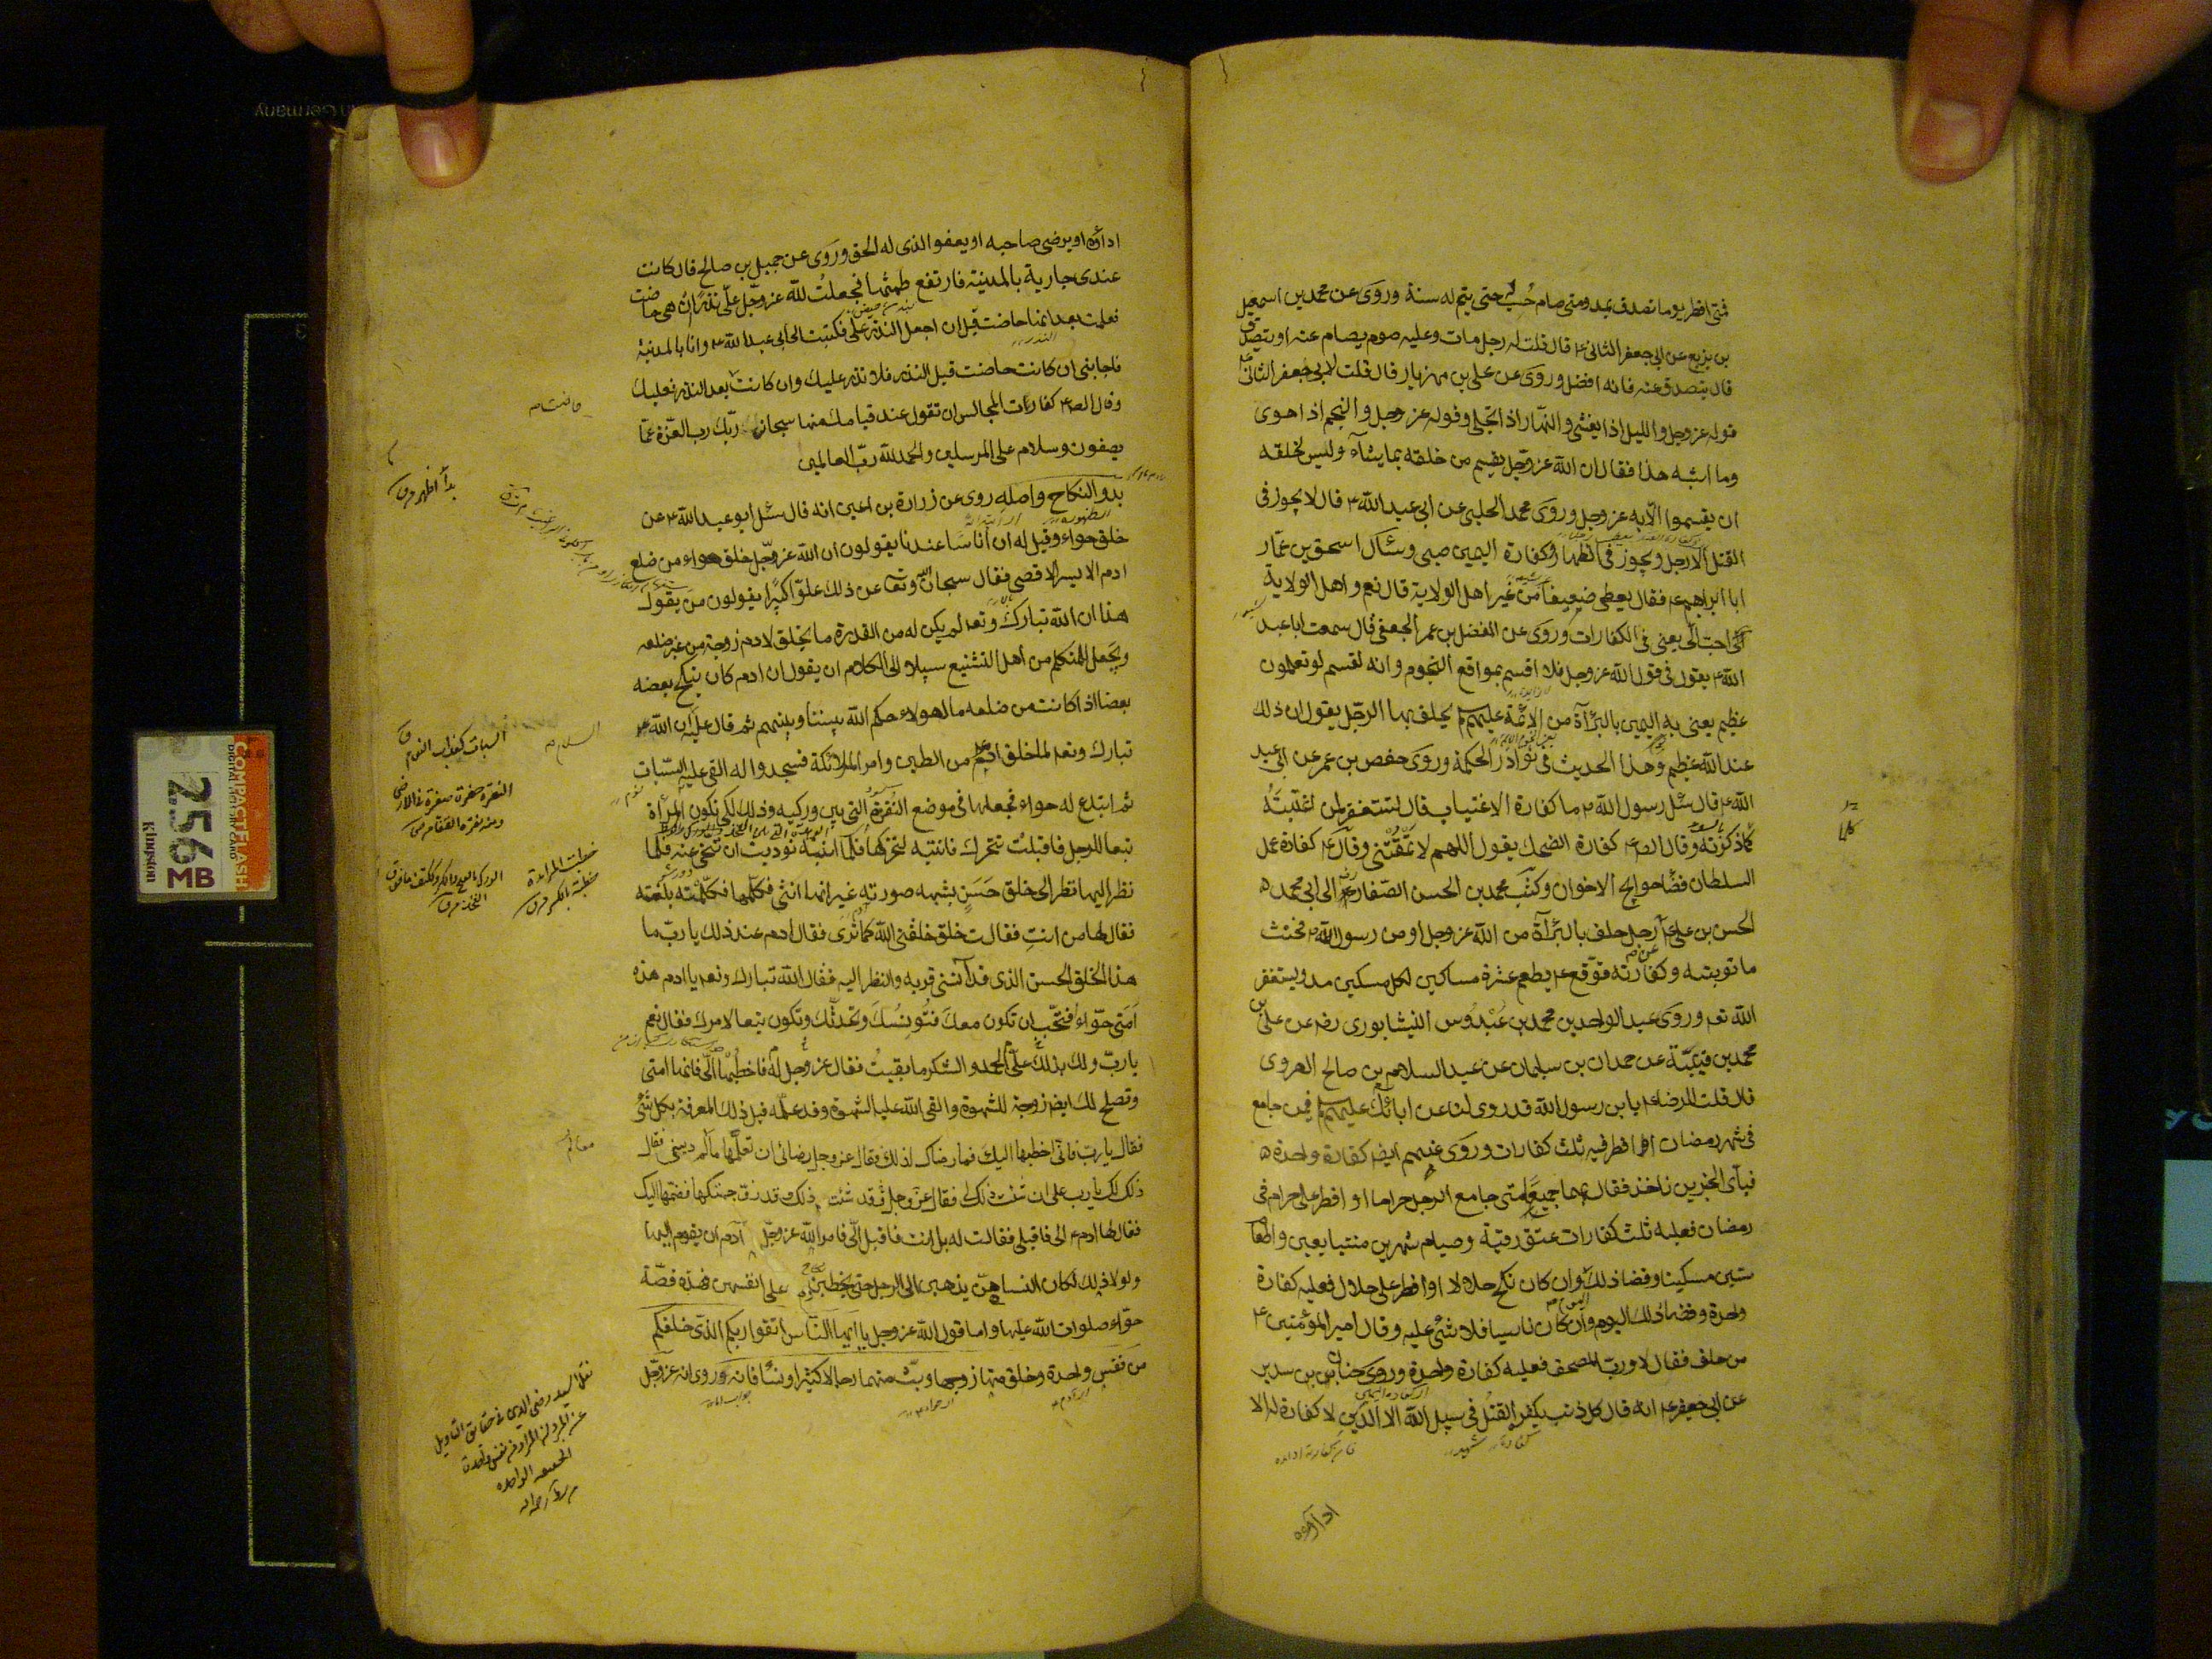 فمتى افطر يوما تصدق بمد ومتى صام حُسب له حتى يتم له سنة وروى عن محمد بن اسمعيل
بن بزيع عن ابي جعفر الثاني ع قال قلت له رجل مات وعليه صوم يصام عنه او يتصدق
قال يتصدق عنه فانه افضل وروى عن علي بن مهزيار قال قلت لابي جعفر الثاني ع
قوله عز وجل والليل اذا يغشى والنهار اذا تجلى وقوله عز وجل والنجم اذا هوى
وما اشبه هذا فقال ان الله عز وجل يقسم من خلقه بما يشاء وليس لخلقه
ان يقسموا الا به عز وجل وروى محمد الحلبي عن ابي عبد الله ع قال لا يجوز في
القتل الا رجل ويجوز في الظهار وكفارة اليمين صبي وسأل اسحق بن عمار
ابا ابراهيم ع فقال يعطى ضعيفا من غير اهل الولاية قال نعم واهل الولاية
احب الى يعنى في الكفارات وروى عن المفضل بن عمر الجعفي قال سمعت ابا عبد
الله ع يقول في قول الله عز وجل فلا اقسم بمواقع النجوم وانه لقسم لو تعلمون
عظيم يعني به اليمين بالبرآءة من الائمة عليهم يحلف بها الرجل يقول ان ذلك
عند الله عظيم وهذا الحديث في نوادر الحكمة وروى حفص بن عمر عن ابي عبد
الله ع قال سئل رسول الله ص ما كفارة الاغتياب قال تستغفر لمن اغتبته
كما ذكرته وقال الص ع كفارة الضحك يقول اللهم لا تمقتني وقال ع كفارة عمل
السلطان قضا حوايج الاخوان وكتب محمد بن الحسن الصفار الى ابي محمد
الحسن بن علي ع رجل حلف بالبرآءة من الله عز وجل او من رسول الله ص فحنث
ما توبته وكفارته فوقع ع يطعم عشرة مساكين لكل مسكين مد ويستغفر
الله تع وروى عبد الواحد بن محمد بن عَبْدُوس النيشابوري رض عن علي بن
محمد بن قتيبة عن حمدان بن سليمان عن عبد السلام بن صالح الهروى
قال قلت للرضا ع يابن رسول الله قد روى لنا عن ابائك عليهم فيمن جامع
في شهر رمضان او افطر فيه ثلث كفارات وروى عنهم ايضا كفارة واحدة
فبأى الخبرين ناخذ فقال بهما جميعا متى جامع الرجل حراما او افطر على حرام في
رمضان فعليه ثلث كفارات عتق رقبة وصيام شهرين متتابعين واطعام
ستين مسكينا وقضا ذلك وان كان نكح حلالا او افطر على حلال فعليه كفارة
واحدة وقضاء ذلك اليوم وان كان ناسيا فلا شئ عليه وقال امير المؤمنين ع
من حلف فقال لا ورب المصحف فعليه كفارة واحدة وروى حنان بن سدير
عن ابي جعفر ع انه قال كل ذنب يكفره القتل في سبيل الله الا الدين لا كفارة له الا
اداؤه
اداؤه او يرضى صاحبه او يعفو الذى له الحق وروى عن جميل بن صالح قال كانت
عندى جارية بالمدينة فارتفع طمثها فجعلت لله عز وجل على نذرا ان هى حاضت
فعلمت بعد انها حاضت قبل ان اجعل النذر على فكتبت الى ابي عبد الله ع وانا بالمدينة
فاجابني ان كانت حاضت قبل النذر فلا نذر عليك وان كانت بعد النذر فعليك
وقال الص ع كفارات المجالس ان تقول عند قيامك منها سبحان ربك رب العزة عما
يصفون وسلام على المرسلين والحمد لله رب العالمين
بدو النكاح واصله روى عن زرارة بن اعين انه قال سئل ابو عبد الله ع عن
خلق حواء وقيل له ان أناسا عندنا يقولون ان الله عز وجل خلق حواء من ضلع
ادم الايسر الاقصى فقال سبحان الله وتعا عن ذلك علوا كبيرا يقولون من يقول
هذا ان الله تبارك وتعا لم يكن له من القدرة ما يخلق لادم زوجة من غير ضلعه
ويجعل للمتكلم من اهل التشنيع سبيلا الى الكلام ان يقول ان ادم كان ينكح بعضه
بعضا اذا كانت من ضلعه ما لهولاء حكم الله بيننا وبينهم ثم قال ع ان الله
تبارك وتعا لما خلق ادم من الطين وامر الملائكة فسجدوا له القى عليه السبات
ثم ابتدع له حواء فجعلها في موضع النقرة التي بين وركيه وذلك لكي تكون المرأة
تبعا للرجل فاقبلت تتحرك فانتبه لتحركها فلما انتبه نوديت ان تنحى عنه فلما
نظر اليها نظر الى خلق حَسَنٍ يشبه صورته غير انها انثى فكلمها فكلمته بلغته
فقال لها من انتِ فقالت خلق خلقني الله كما ترى فقال ادم عند ذلك يا رب ما
هذا الخلق الحسن الذى قد آنسنى قربه والنظر اليه فقال الله تبارك وتعا يا ادم هذه
اَمَتى حوّاء فتحب ان تكون معك فتؤنسك وتحدثك وتكون تبعا لامرك فقال نعم
يا رب ولك بذلك على الحمد والشكر ما بقيت فقال عز وجل له فاخطبها الى فانها امتى
وتصلح لك ايضا زوجة للشهوة والقى الله عليه الشهوة وقد علمه قبل ذلك المعرفة بكل شئ
فقال يا رب فاني اخطبها اليك فما رضاك لذلك فقال عز وجل رضائى ان تعلمها معالم دينى فقال
ذلك لك يا رب على ان شئت ذلك فقال عز وجل قد شئت ذلك وقد زوجتكها فضمها اليك
فقال لها ادم ع الى فاقبلى فقالت له بل انت فاقبل الى فامر الله عز وجل آدم ان يقوم اليها
ولولا ذلك لكان النساء هن يذهبن الى الرجال حتى يخطبن على انفسهن فهذه قصة
حواء صلوات الله عليها واما قول الله عز وجل يا ايها الناس اتقوا ربكم الذى خلقكم
من نفس واحدة وخلق منها زوجها وبث منهما رجالا كثيرا ونساء فانه روى انه عز وجل
COMPACTFLASH
DIGITAL MEDIA CARD
256
MB
Kingston